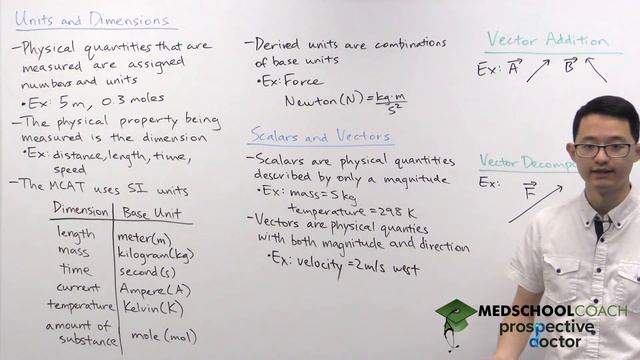 Units and Dimensions
-Physical quantities that are
measured are assigned
numbers and units
•Ex: 5 m, 0.3 moles
-The physical property being
measured is the dimension
•Ex: distance, length, time,
speed
-The MCAT uses SI units
Dimension Base Unit
length meter(m)
mass kilogram(kg)
time second(s)
current Ampere(A)
temperature Kelvin(K)
amount of
substance mole(mol)
-Derived units are combinations
of base units
•Ex: Force
Newton(N) = kg·m
s²
Scalars and Vectors
-Scalars are physical quantities
described by only a magnitude
•Ex: mass=5 kg
temperature=298 K
-Vectors are physical quanties
with both magnitude and direction
•Ex: velocity=2m/s west
Vector Addition
Ex: A B
Vector
Ex: F
MEDSCHOOLCOACH
prospective
doctor